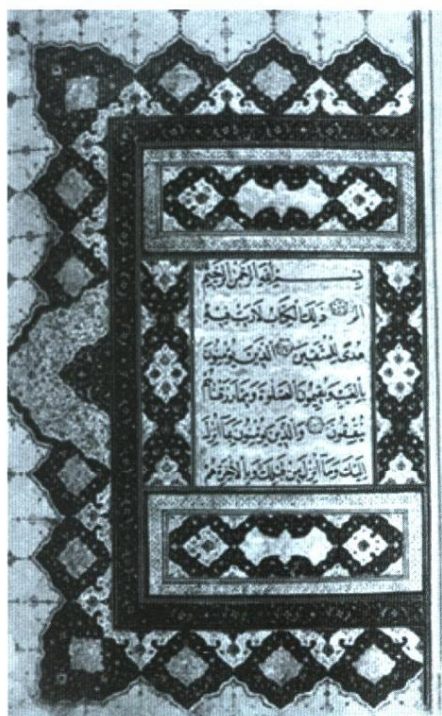 بسم الله الرحمن الرحيم
الم ذلك الكتاب لا ريب فيه
هدى للمتقين الذين يؤمنون
بالغيب ويقيمون الصلوة ومما رزقناهم
ينفقون والذين يؤمنون بما انزل
اليك وما انزل من قبلك وبالآخرة هم